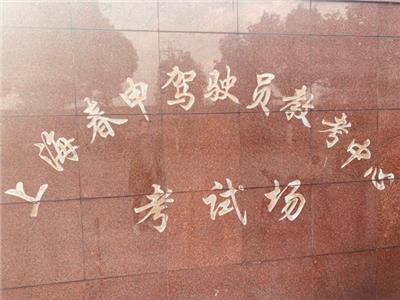 上海春申驾驶员教考中心
考试场